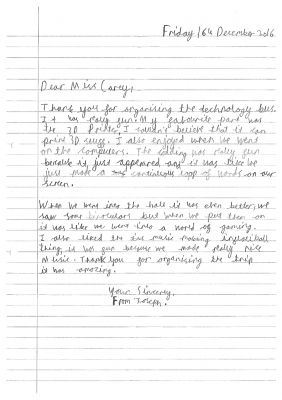 Friday 16th December 2016
Dear Miss Carey,
Thank you for organising the technology bus.
It was really fun. My favourite part was
the 3D Printer, I couldn't believe that it can
print 3D stuff. I also enjoyed when we went
on the computers. The coding was really fun
because it just appeared and it was like we
just made a continuous loop of words on our
screen.
When we went into the hall it was even better, we
saw some binoculars but when we put them on
it was like we went into a world of gaming.
I also liked the music making
thing, it was fun because we made really nice
Music. Thank you for organising the trip
it was amazing.
Your Sincerely,
From Joseph.